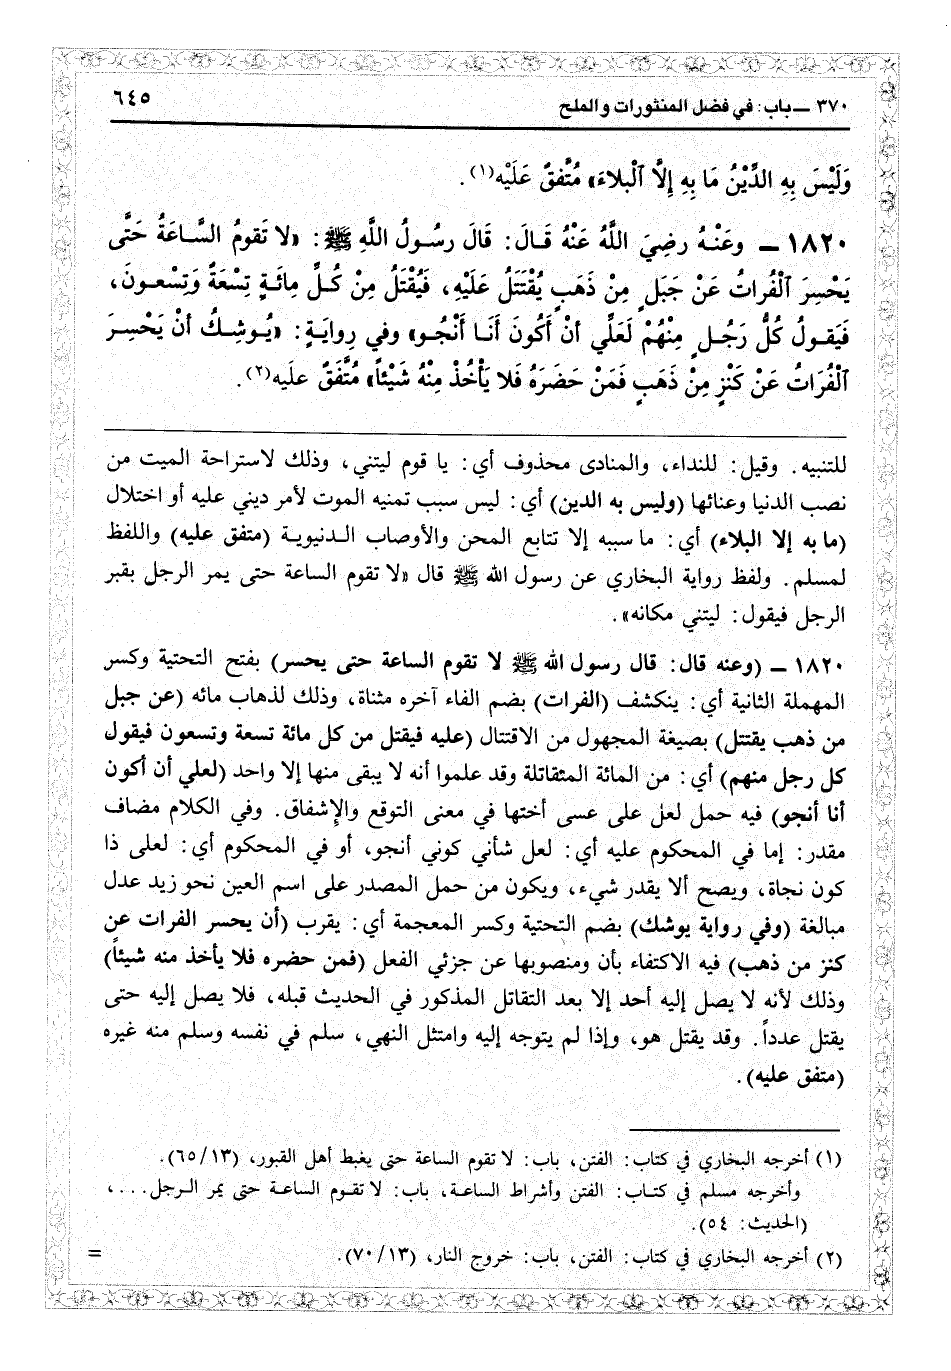 ٣٧٠ ــ باب: في فضل المنثورات والملح ٦٤٥
وَلَيْسَ بِهِ الدَّيْنُ مَا بِهِ إِلَّا ٱلْبلاءَ» مُتَّفقٌ عَلَيْه(١).
١٨٢٠ ــ وعَنْـهُ رضِيَ اللَّهُ عَنْهُ قَـالَ: قَالَ رسُـولُ اللَّهِ ﷺ: «لا تَقومُ السَّـاعَةُ حَتَّى
يَحْسِرَ ٱلْفُراتُ عَنْ جَبَلٍ مِنْ ذَهَبٍ يُقْتَتَلُ عَلَيْهِ، فَيُقْتَلُ مِنْ كُـلِّ مِائَـةٍ تِسْعَةٌ وَتِسْعـونَ،
فَيَقـولُ كُلُّ رَجُـلٍ مِنْهُمْ لَعَلِّي أنْ أَكُونَ أنَـا أَنْجُـو» وفي رِوايَـةٍ: «يُـوشِـكُ أنْ يَحْسِـرَ
ٱلْفُرَاتُ عَنْ كَنْزٍ مِنْ ذَهَبٍ فَمَنْ حَضَرَهُ فَلا يَأْخُذْ مِنْهُ شَيْئاً» مُتَّفَقٌ علَيه(٢).
للتنبيه. وقيل: للنداء، والمنادى محذوف أي: يا قوم ليتني، وذلك لاستراحة الميت من
نصب الدنيا وعنائها (وليس به الدين) أي: ليس سبب تمنيه الموت لأمر ديني عليه أو اختلال
(ما به إلا البلاء) أي: ما سببه إلا تتابع المحن والأوصاب الـدنيويـة (متفق عليه) واللفظ
لمسلم. ولفظ رواية البخاري عن رسول الله ﷺ قال «لا تقوم الساعة حتى يمر الرجل بقبر
الرجل فيقول: ليتني مكانه».
١٨٢٠ ــ (وعنه قال: قال رسول الله ﷺ لا تقوم الساعة حتى يحسر) بفتح التحتية وكسر
المهملة الثانية أي: ينكشف (الفرات) بضم الفاء آخره مثناة، وذلك لذهاب مائه (عن جبل
من ذهب يقتتل) بصيغة المجهول من الاقتتال (عليه فيقتل من كل مائة تسعة وتسعون فيقول
كل رجل منهم) أي: من المائة المتقاتلة وقد علموا أنه لا يبقى منها إلا واحد (لعلي أن أكون
أنا أنجو) فيه حمل لعل على عسى أختها في معنى التوقع والإشفاق. وفي الكلام مضاف
مقدر: إما في المحكوم عليه أي: لعل شأني كوني أنجو، أو في المحكوم أي: لعلى ذا
كون نجاة، ويصح ألا يقدر شيء، ويكون من حمل المصدر على اسم العين نحو زيد عدل
مبالغة (وفي رواية يوشك) بضم التحتية وكسر المعجمة أي: يقرب (أن يحسر الفرات عن
كنز من ذهب) فيه الاكتفاء بأن ومنصوبها عن جزئي الفعل (فمن حضره فلا يأخذ منه شيئاً)
وذلك لأنه لا يصل إليه أحد إلا بعد التقاتل المذكور في الحديث قبله، فلا يصل إليه حتى
يقتل عدداً. وقد يقتل هو، وإذا لم يتوجه إليه وامتثل النهي، سلم في نفسه وسلم منه غيره
(متفق عليه).
(١) أخرجه البخاري في كتاب: الفتن، باب: لا تقوم الساعة حتى يغبط أهل القبور، (٦٥/١٣).
وأخرجه مسلم في كتـاب: الفتن وأشراط الساعـة، باب: لا تقـوم الساعـة حتى يمر الـرجل...،
(الحديث: ٥٤).
(٢) أخرجه البخاري في كتاب: الفتن، باب: خروج النار، (٧٠/١٣). =